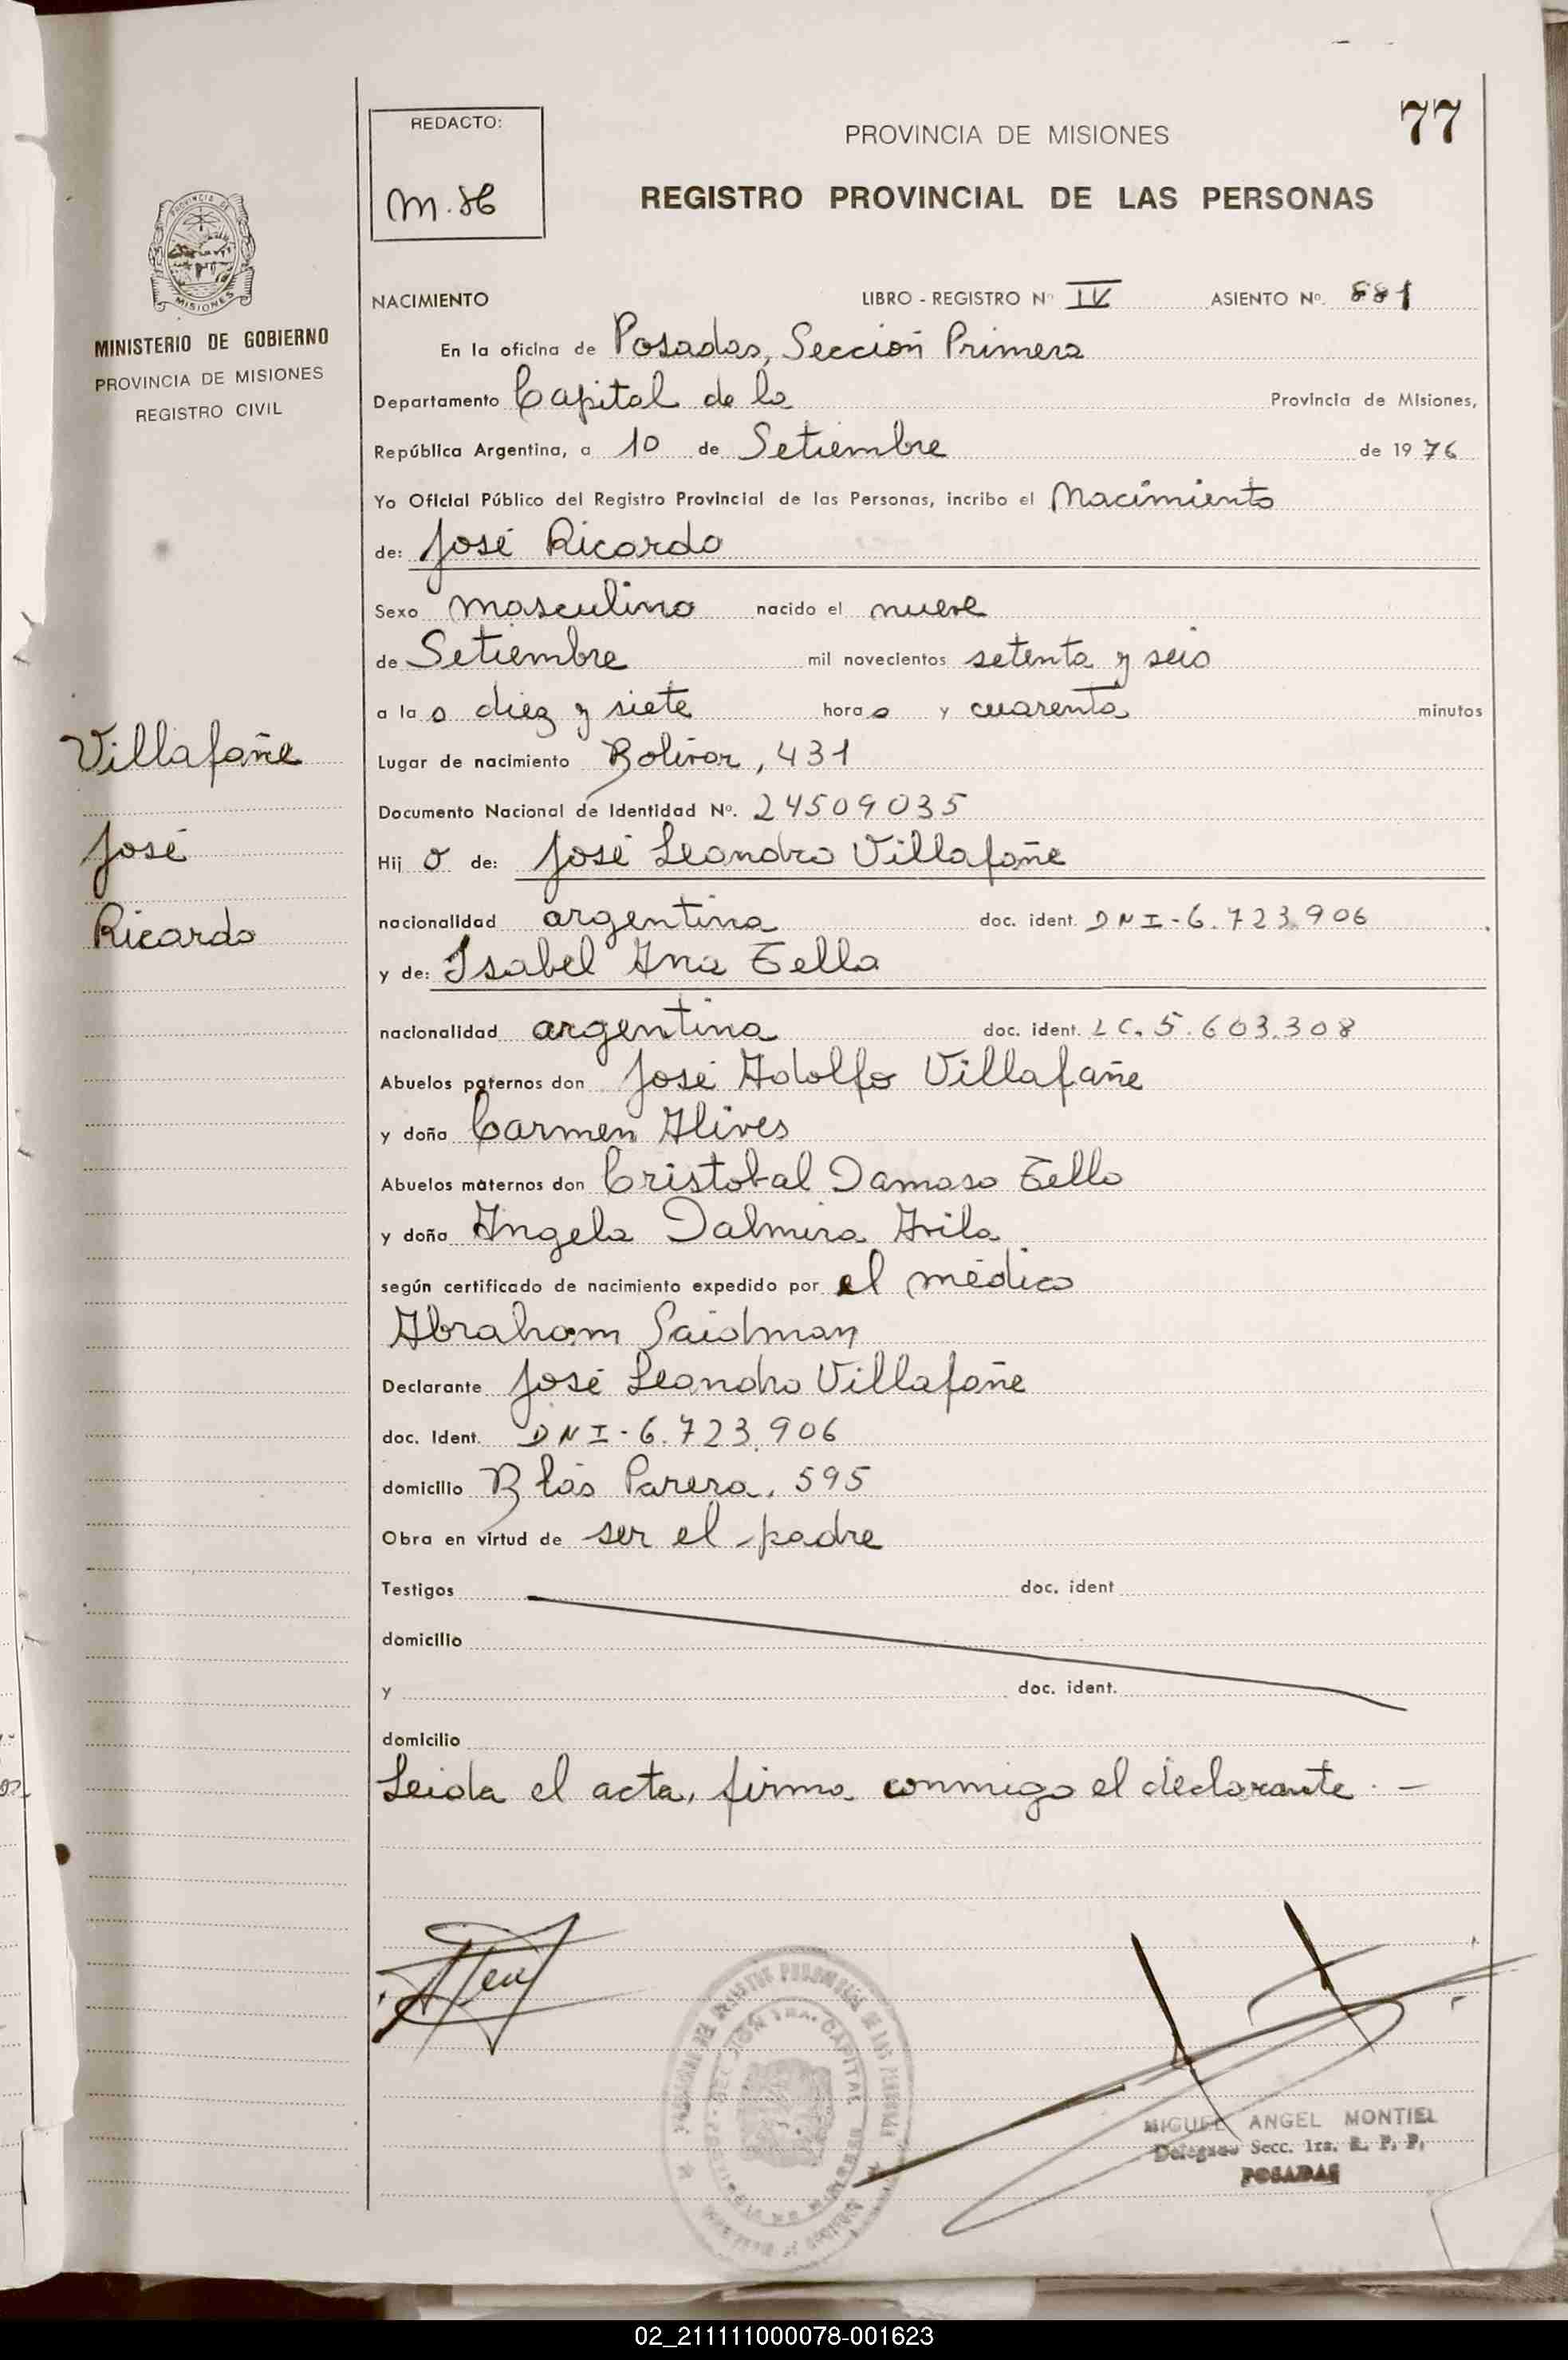 77
REDACTO:
PROVINCIA DE MISIONES
REGISTRO PROVINCIAL DE LAS PERSONAS
PROVINCIA DE
MISIONES
MINISTERIO DE GOBIERNO
PROVINCIA DE MISIONES
REGISTRO CIVIL
NACIMIENTO LIBRO - REGISTRO Nº IV ASIENTO Nº. 881
En la oficina de Posadas, Sección Primera
Departamento Capital de la Provincia de Misiones,
República Argentina, a 10 de Setiembre de 1976
Yo Oficial Público del Registro Provincial de las Personas, incribo el Nacimiento
de: José Ricardo
Sexo masculino nacido el nueve
de Setiembre mil novecientos setenta y seis
a las diez y siete horas y cuarenta minutos
Villafañe
José
Ricardo
Lugar de nacimiento Bolívar, 431
Documento Nacional de Identidad Nº. 24509035
Hijo de: José Leandro Villafañe
nacionalidad argentina doc. ident. DNI-6.723.906
y de: Isabel Ana Tella
nacionalidad argentina doc. ident. LC. 5.603.308
Abuelos paternos don José Adolfo Villafañe
y doña Carmen Alives
Abuelos maternos don Cristobal Damaso Tello
y doña Angela Dalmira Avila
según certificado de nacimiento expedido por el médico
Abraham Saidman
Declarante José Leandro Villafañe
doc. Ident. DNI-6.723.906
domicilio Blás Parera, 595
Obra en virtud de ser el padre
Testigos doc. ident
domicilio
y doc. ident.
domicilio
Leida el acta, firma conmigo el declarante. —
MIGUEL ANGEL MONTIEL
Delegado Secc. 1ra. R. P. P.
POSADAS
02_211111000078-001623